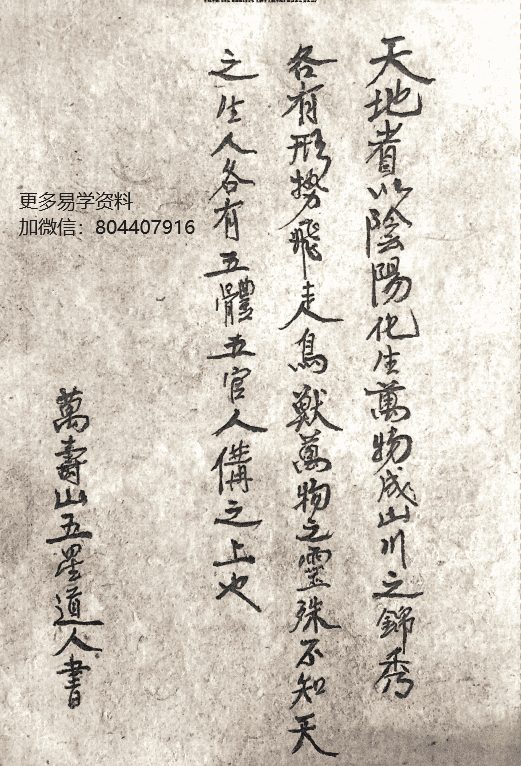 天地者以陰陽化生萬物成山川之錦秀
各有形势飛走鳥獸萬物之靈殊不知天
之生人各有五體五官人備之上也
萬壽山五星道人書
更多易学资料
加微信：804407916